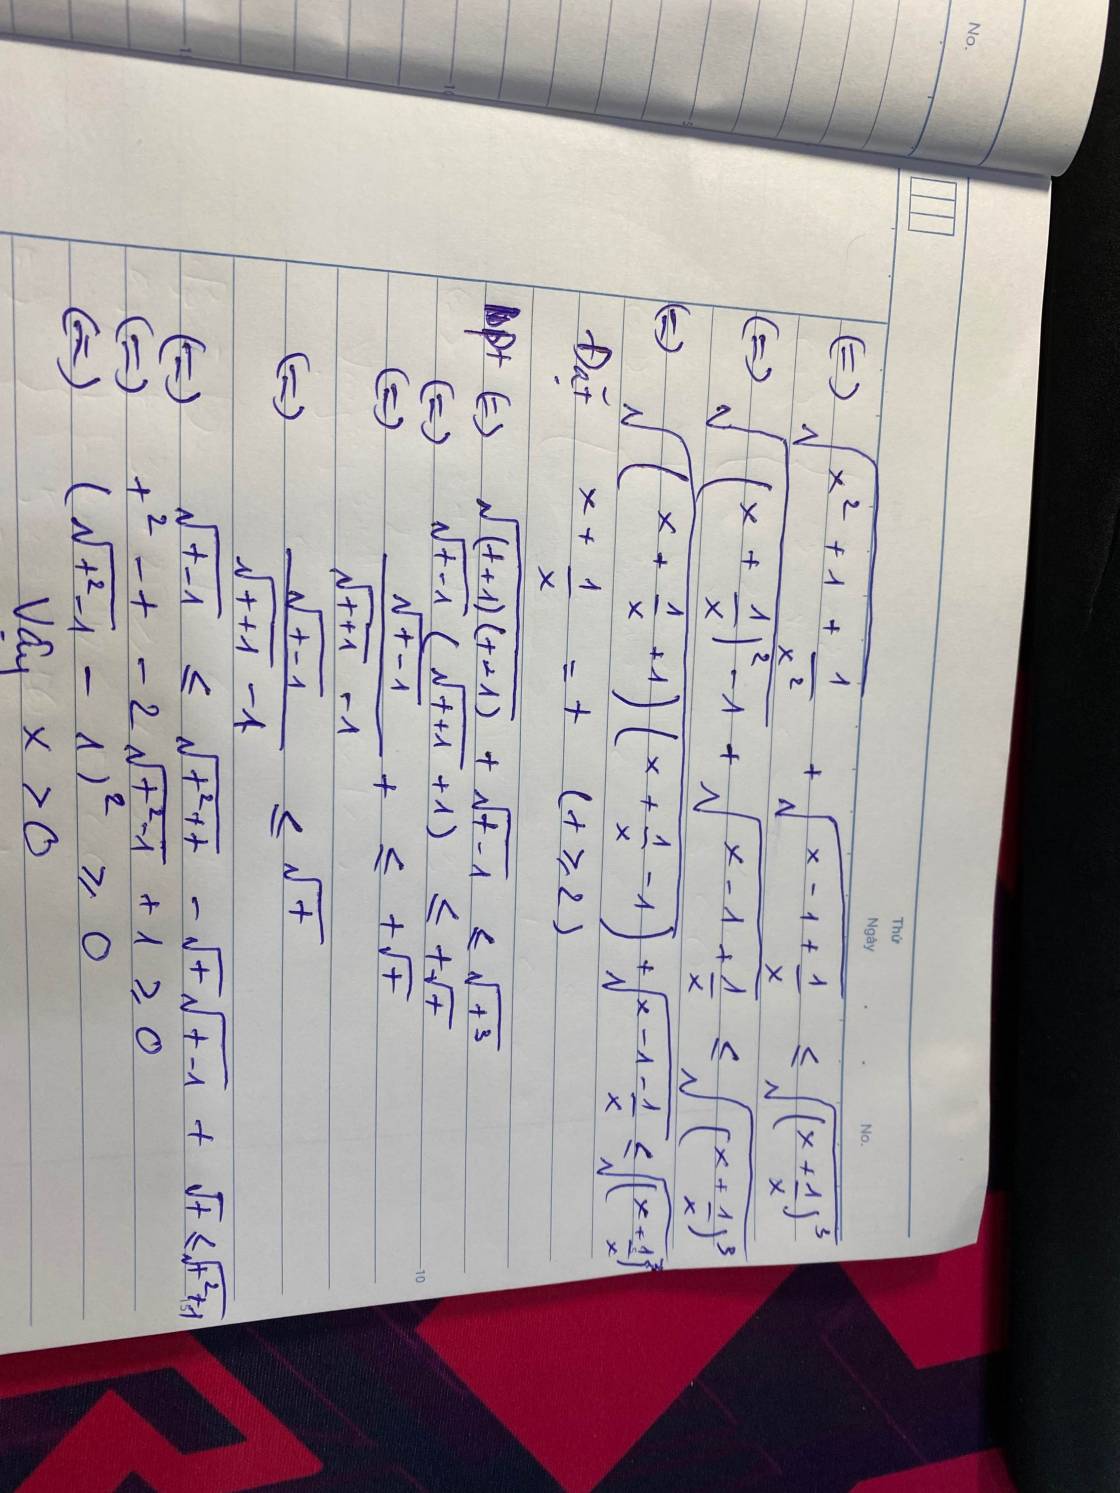 No.
Thứ
Ngày . . No.
(=) √(x² + 1 + 1/x²) + √(x - 1 + 1/x) ≤ √((x + 1/x)³)
(=) √((x + 1/x)² - 1) + √(x - 1 + 1/x) ≤ √((x + 1/x)³)
(=) √((x + 1/x + 1)(x + 1/x - 1)) + √(x - 1 - 1/x) ≤ √((x + 1/x)³)
Đặt x + 1/x = t (t ≥ 2)
bpt (=) √((t+1)(t+1)) + √(t-1) ≤ √(t³)
(=) √(t-1) (√(t+1) + 1) ≤ t√t
(=) √(t-1)/(√(t+1) - 1) t ≤ t√t
(=) √(t-1)/(√(t+1) - 1) ≤ √t
(=) √(t-1) ≤ √(t²+t) - √t √(t-1) + √t ≤ √(t²+1)
(=) t² - t - 2√(t²-1) + 1 ≥ 0
(=) (√(t²-1) - 1)² ≥ 0
Vậy x > 0
10